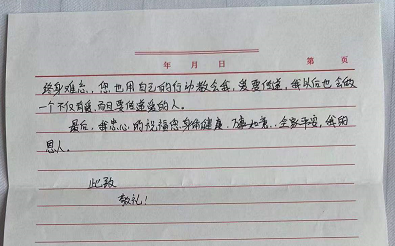 年 月 日 第 页
终身难忘,您也用自己的行动教会我,爱要传递,我以后也会做
一个不仅有爱,而且要传递爱的人。
最后,我衷心的祝福您身体健康、万事如意、全家平安,我的
恩人。
此致
敬礼!